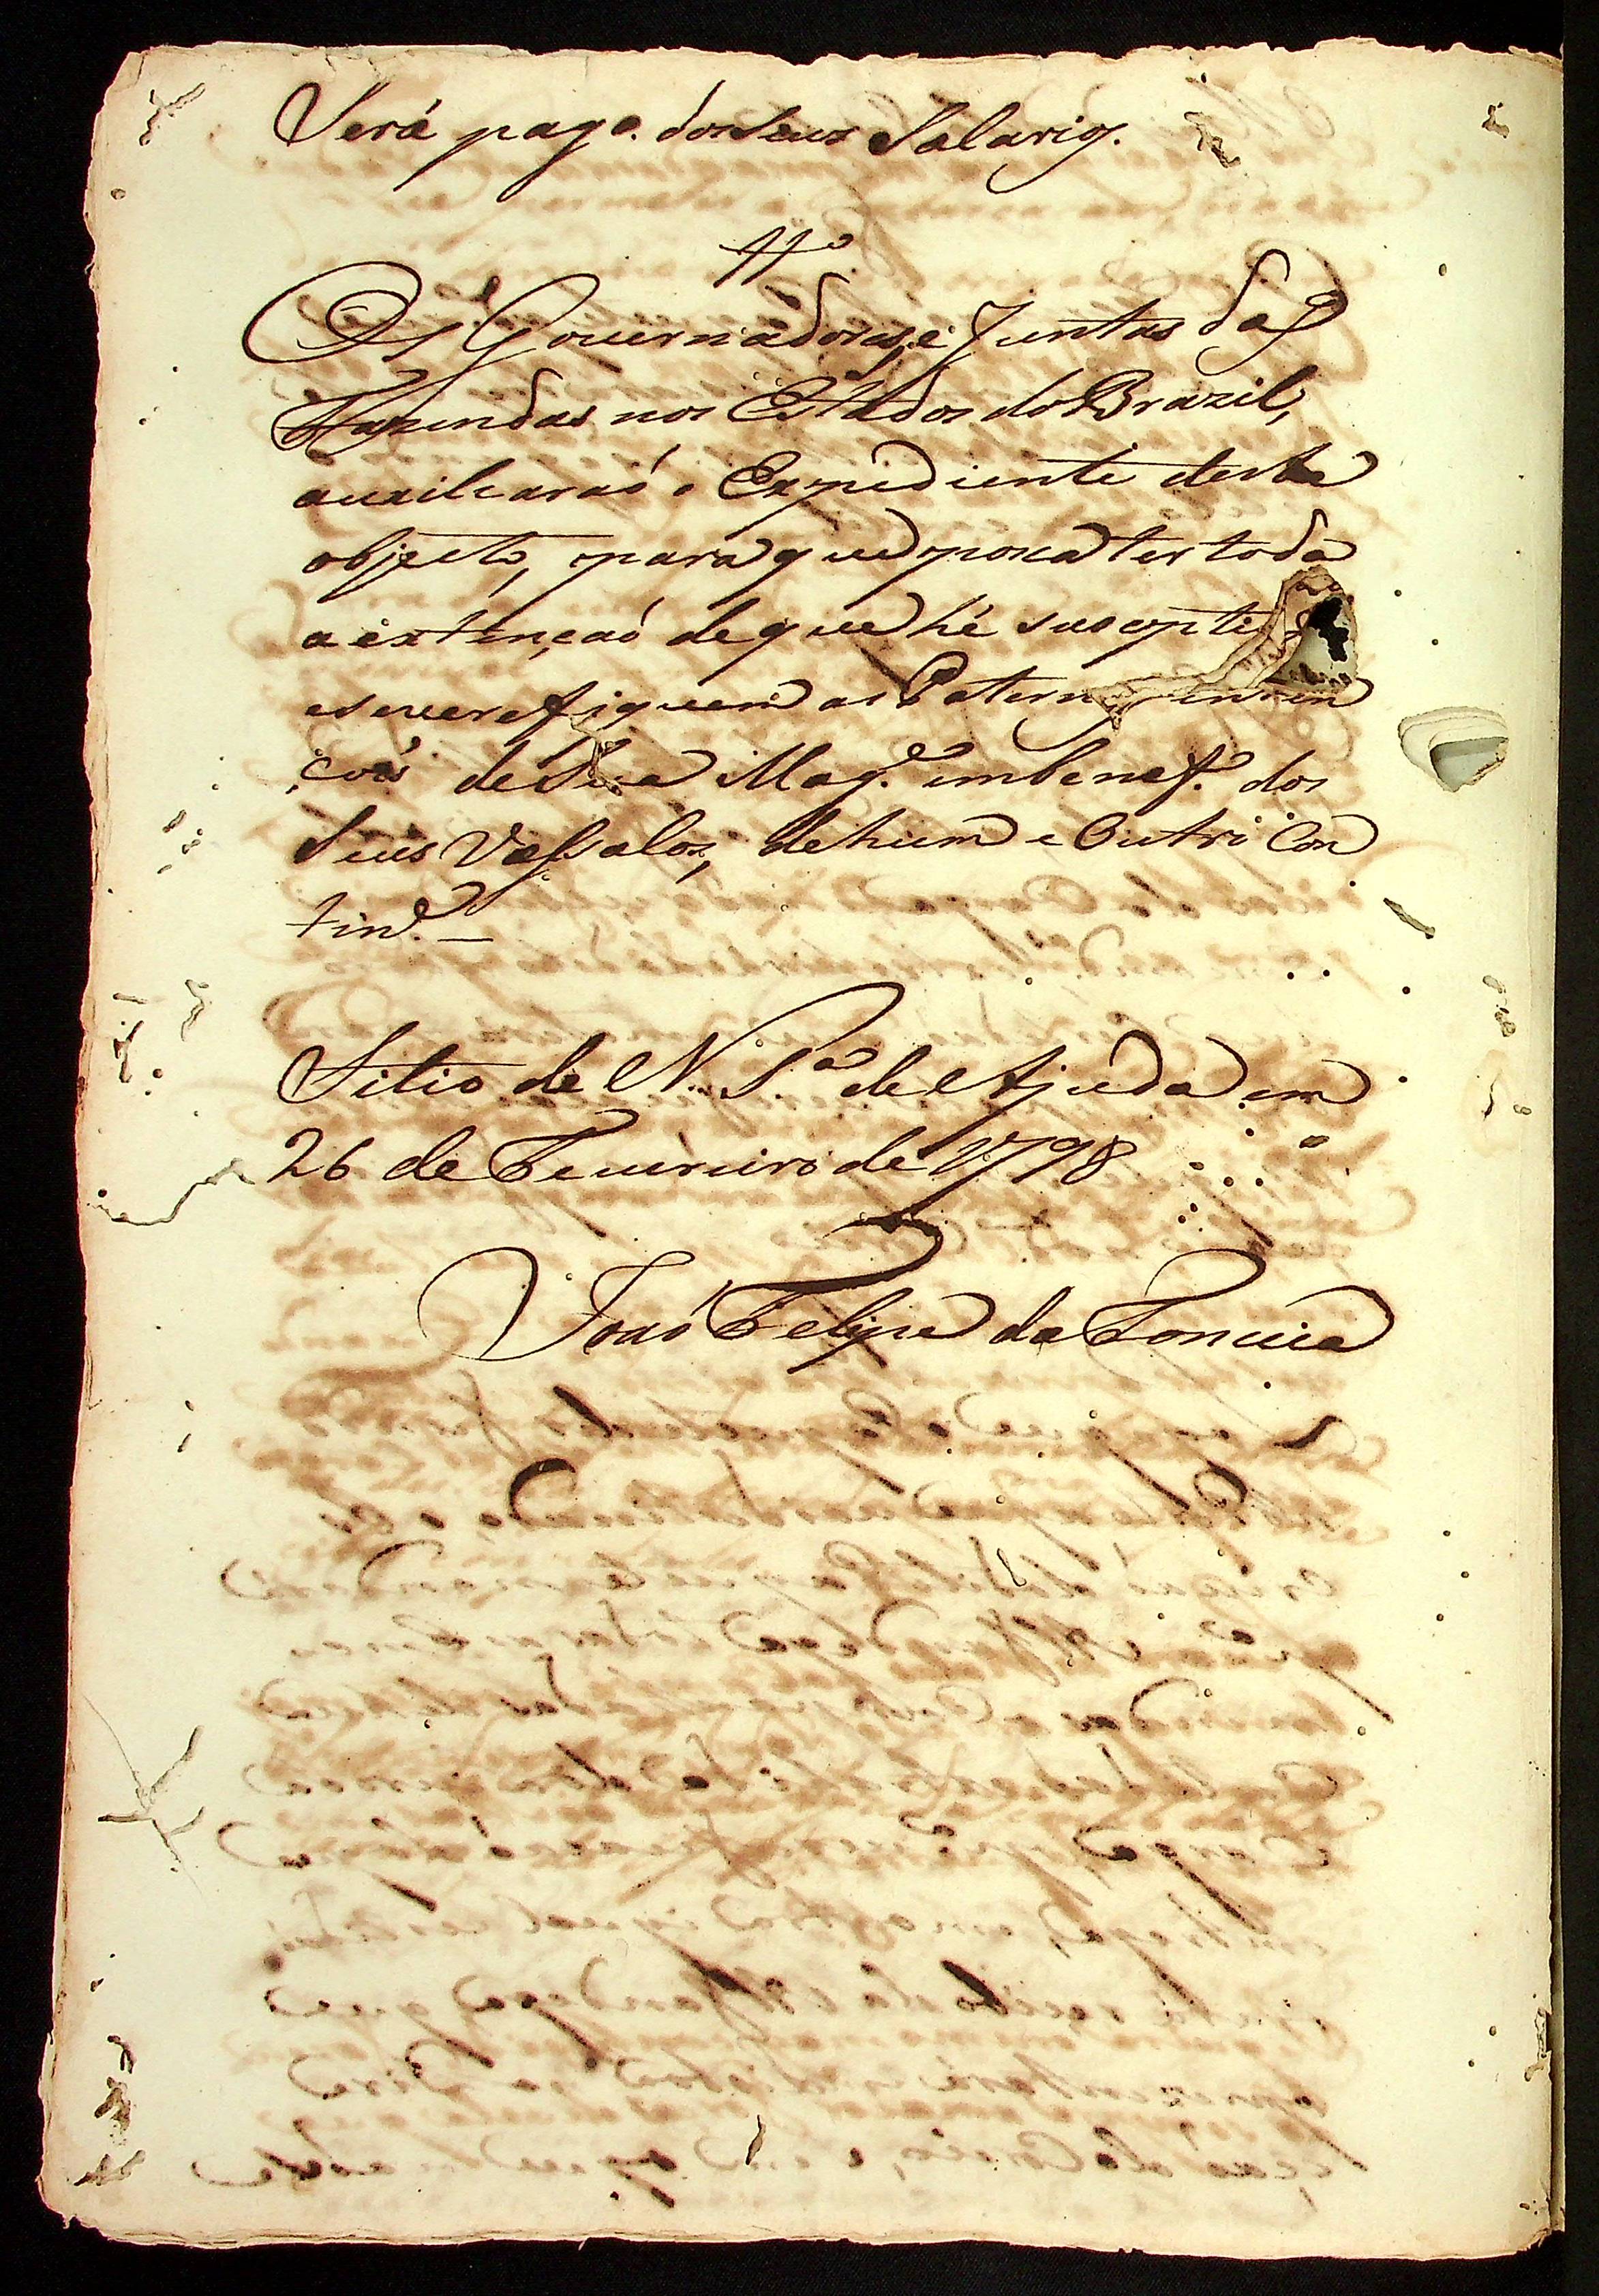 Será pago dos Seus Salarios.
11º
Os Governadores, e Juntas das
Fazendas nos Estados do Brazil,
auxiliaraó o Expediente deste
objecto, para que possa ter toda
a extençaó de que hé suscepti
e se verefiquem as Paternaes inten
çoés de Sua Magᵉ. em benefº. dos
Seus Vassalos, de hum e Outro Con
tinᵉ. —
Sitio de N. Sª. de Ajuda em
26 de Fevereiro de 1798
Joaó Felipe da Fonceca